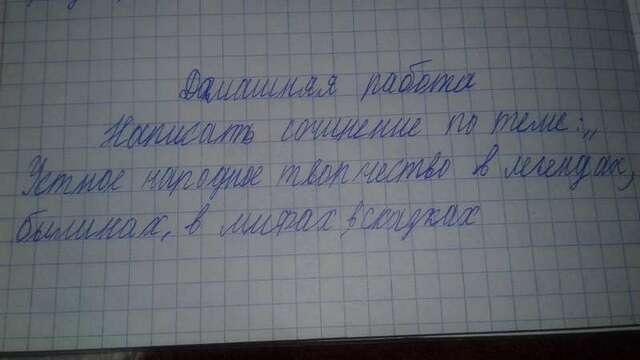 Домашняя работа
Написать сочинение по теме: „
Устное народное творчество в легендах,
былинах, в мифах, в сказках